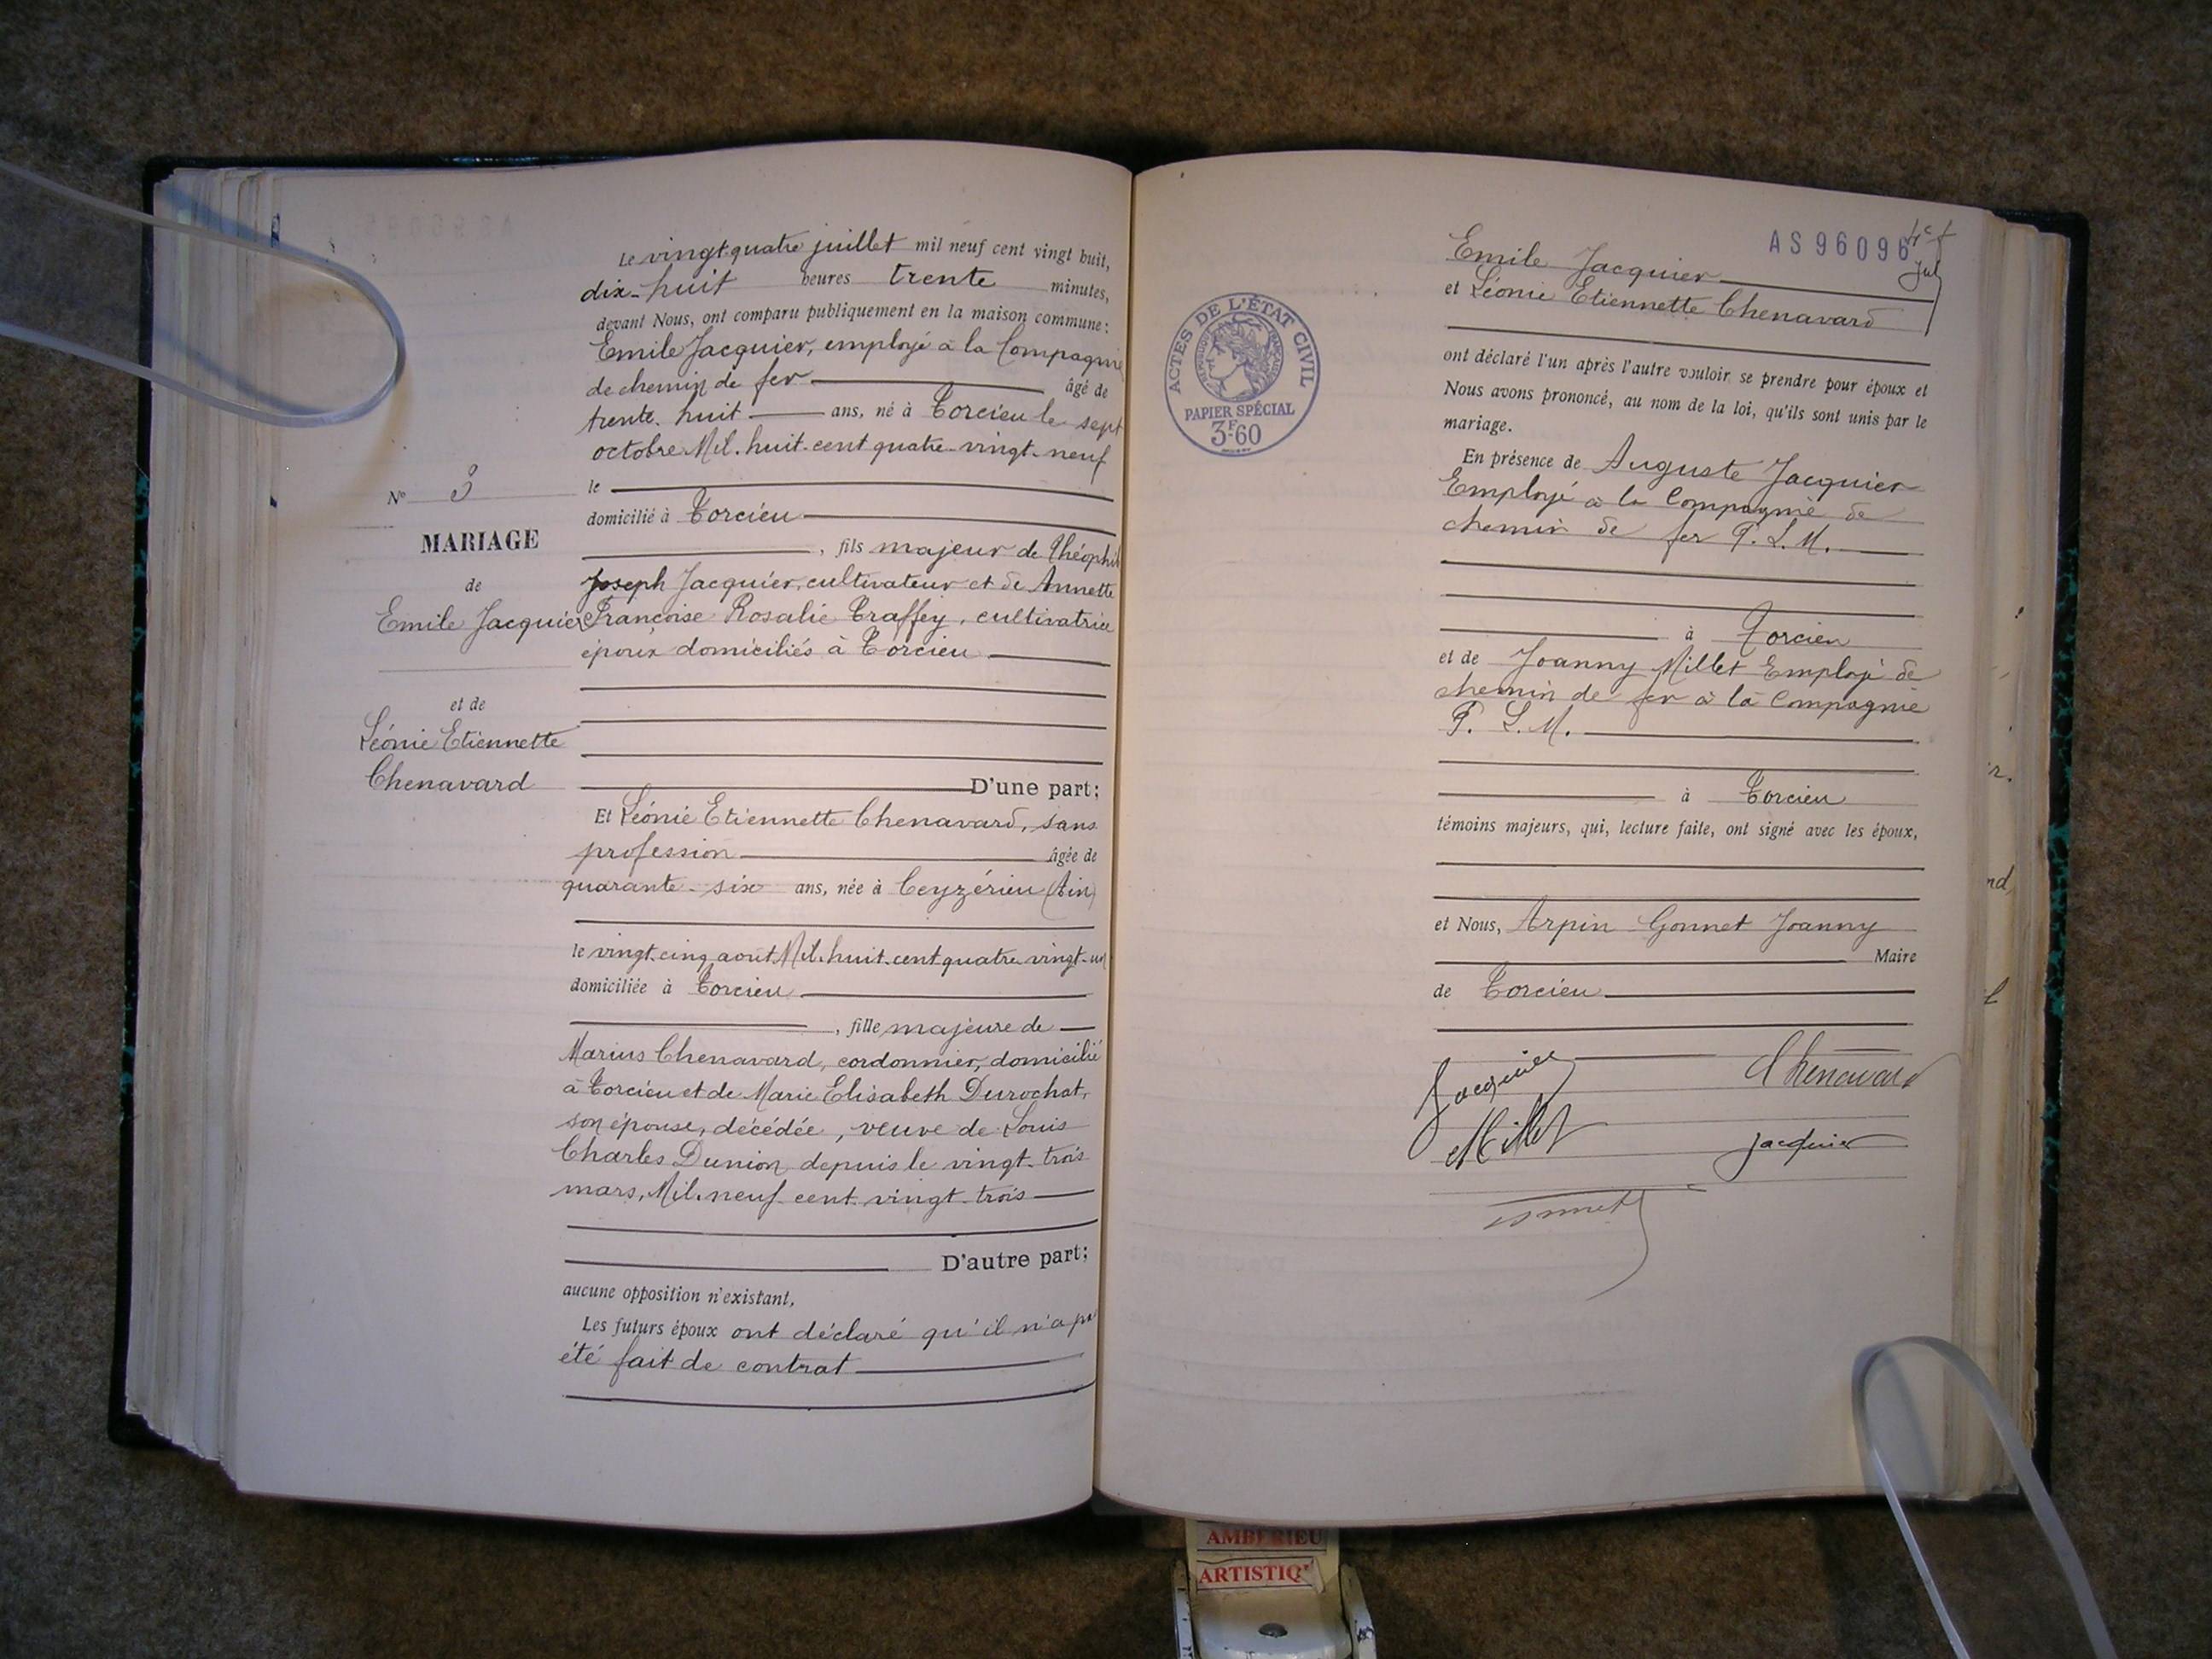 Le vingt quatre juillet mil neuf cent vingt huit,
dix-huit heures trente minutes,
devant Nous, ont comparu publiquement en la maison commune:
Emile Jacquier, employé à la Compagnie
de chemin de fer âgé de
trente-huit ans, né à Torcieu le sept
octobre Mil-huit-cent quatre-vingt-neuf
le
domicilié à Torcieu
, fils majeur de Théophile
Joseph Jacquier, cultivateur et de Annette
Françoise Rosalie Traffey, cultivatrice
époux domiciliés à Torcieu
D'une part;
Et Léonie Etiennette Chenavard, sans
profession âgée de
quarante-six ans, née à Ceyzérieu (Ain)
le vingt-cinq août Mil-huit-cent quatre vingt-un
domiciliée à Torcieu
, fille majeure de
Marius Chenavard, cordonnier, domicilié
à Torcieu et de Marie Elisabeth Durochat,
son épouse, décédée, veuve de Louis
Charles Dunion depuis le vingt-trois
mars, Mil-neuf-cent-vingt-trois
D'autre part;
aucune opposition n'existant,
Les futurs époux ont déclaré qu'il n'a pas
été fait de contrat
N° 3
MARIAGE
de
Emile Jacquier
et de
Léonie Etiennette
Chenavard
AS 96096
Emile Jacquier
et Léonie Etiennette Chenavard
ont déclaré l'un après l'autre vouloir se prendre pour époux et
Nous avons prononcé, au nom de la loi, qu'ils sont unis par le
mariage.
En présence de Auguste Jacquier
Employé à la Compagnie de
chemin de fer P. L. M.
à Torcieu
et de Joanny Millet Employé de
chemin de fer à la Compagnie
P. L. M.
à Torcieu
témoins majeurs, qui, lecture faite, ont signé avec les époux,
et Nous, Arpin Gonnet Joanny
Maire
de Torcieu
Jacquier Chenavard
Millet Jacquier
Gonnet
ACTES DE L'ÉTAT CIVIL
RÉPUBLIQUE FRANÇAISE
PAPIER SPÉCIAL
3F60
AMBERIEU
ARTISTIQU